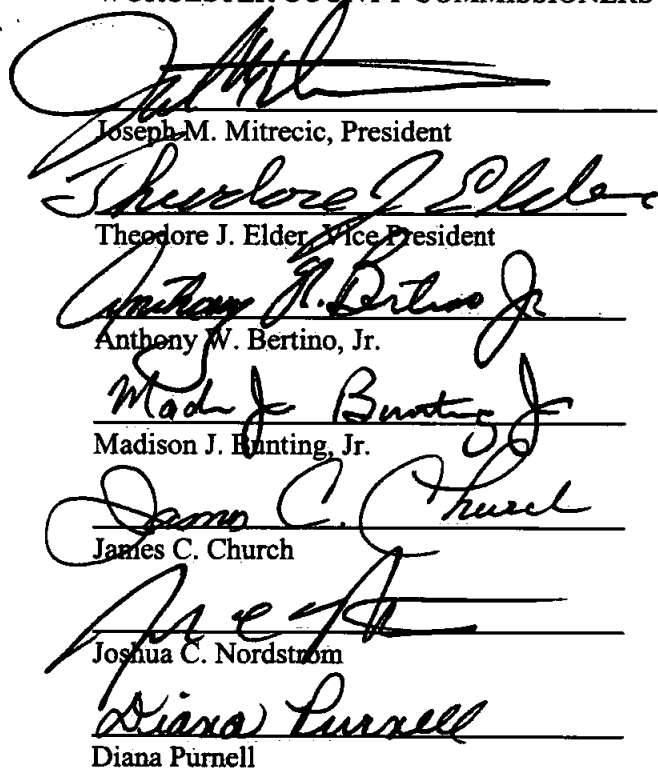 WORCESTER COUNTY COMMISSIONERS
Joseph M. Mitrecic, President
Theodore J Elder
Theodore J. Elder, Vice President
Anthony W. Bertino Jr
Anthony W. Bertino, Jr.
Madison J. Bunting, Jr.
James C. Church
James C. Church
Joshua C. Nordstrom
Diana Purnell
Diana Purnell